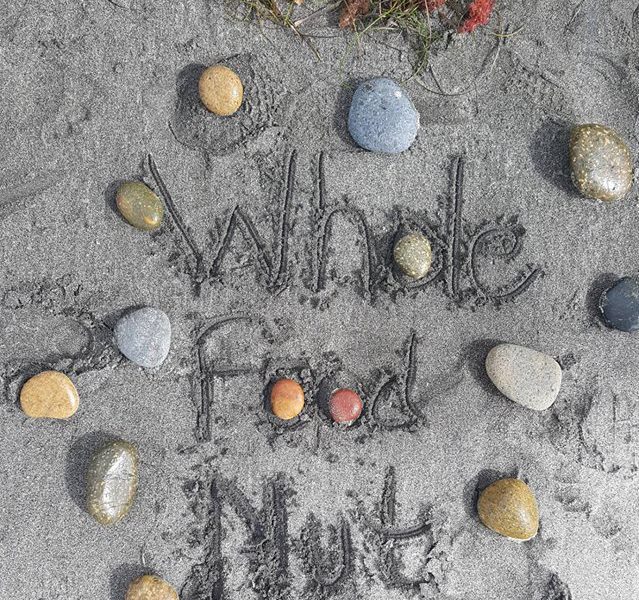 Whole
Food
Nut